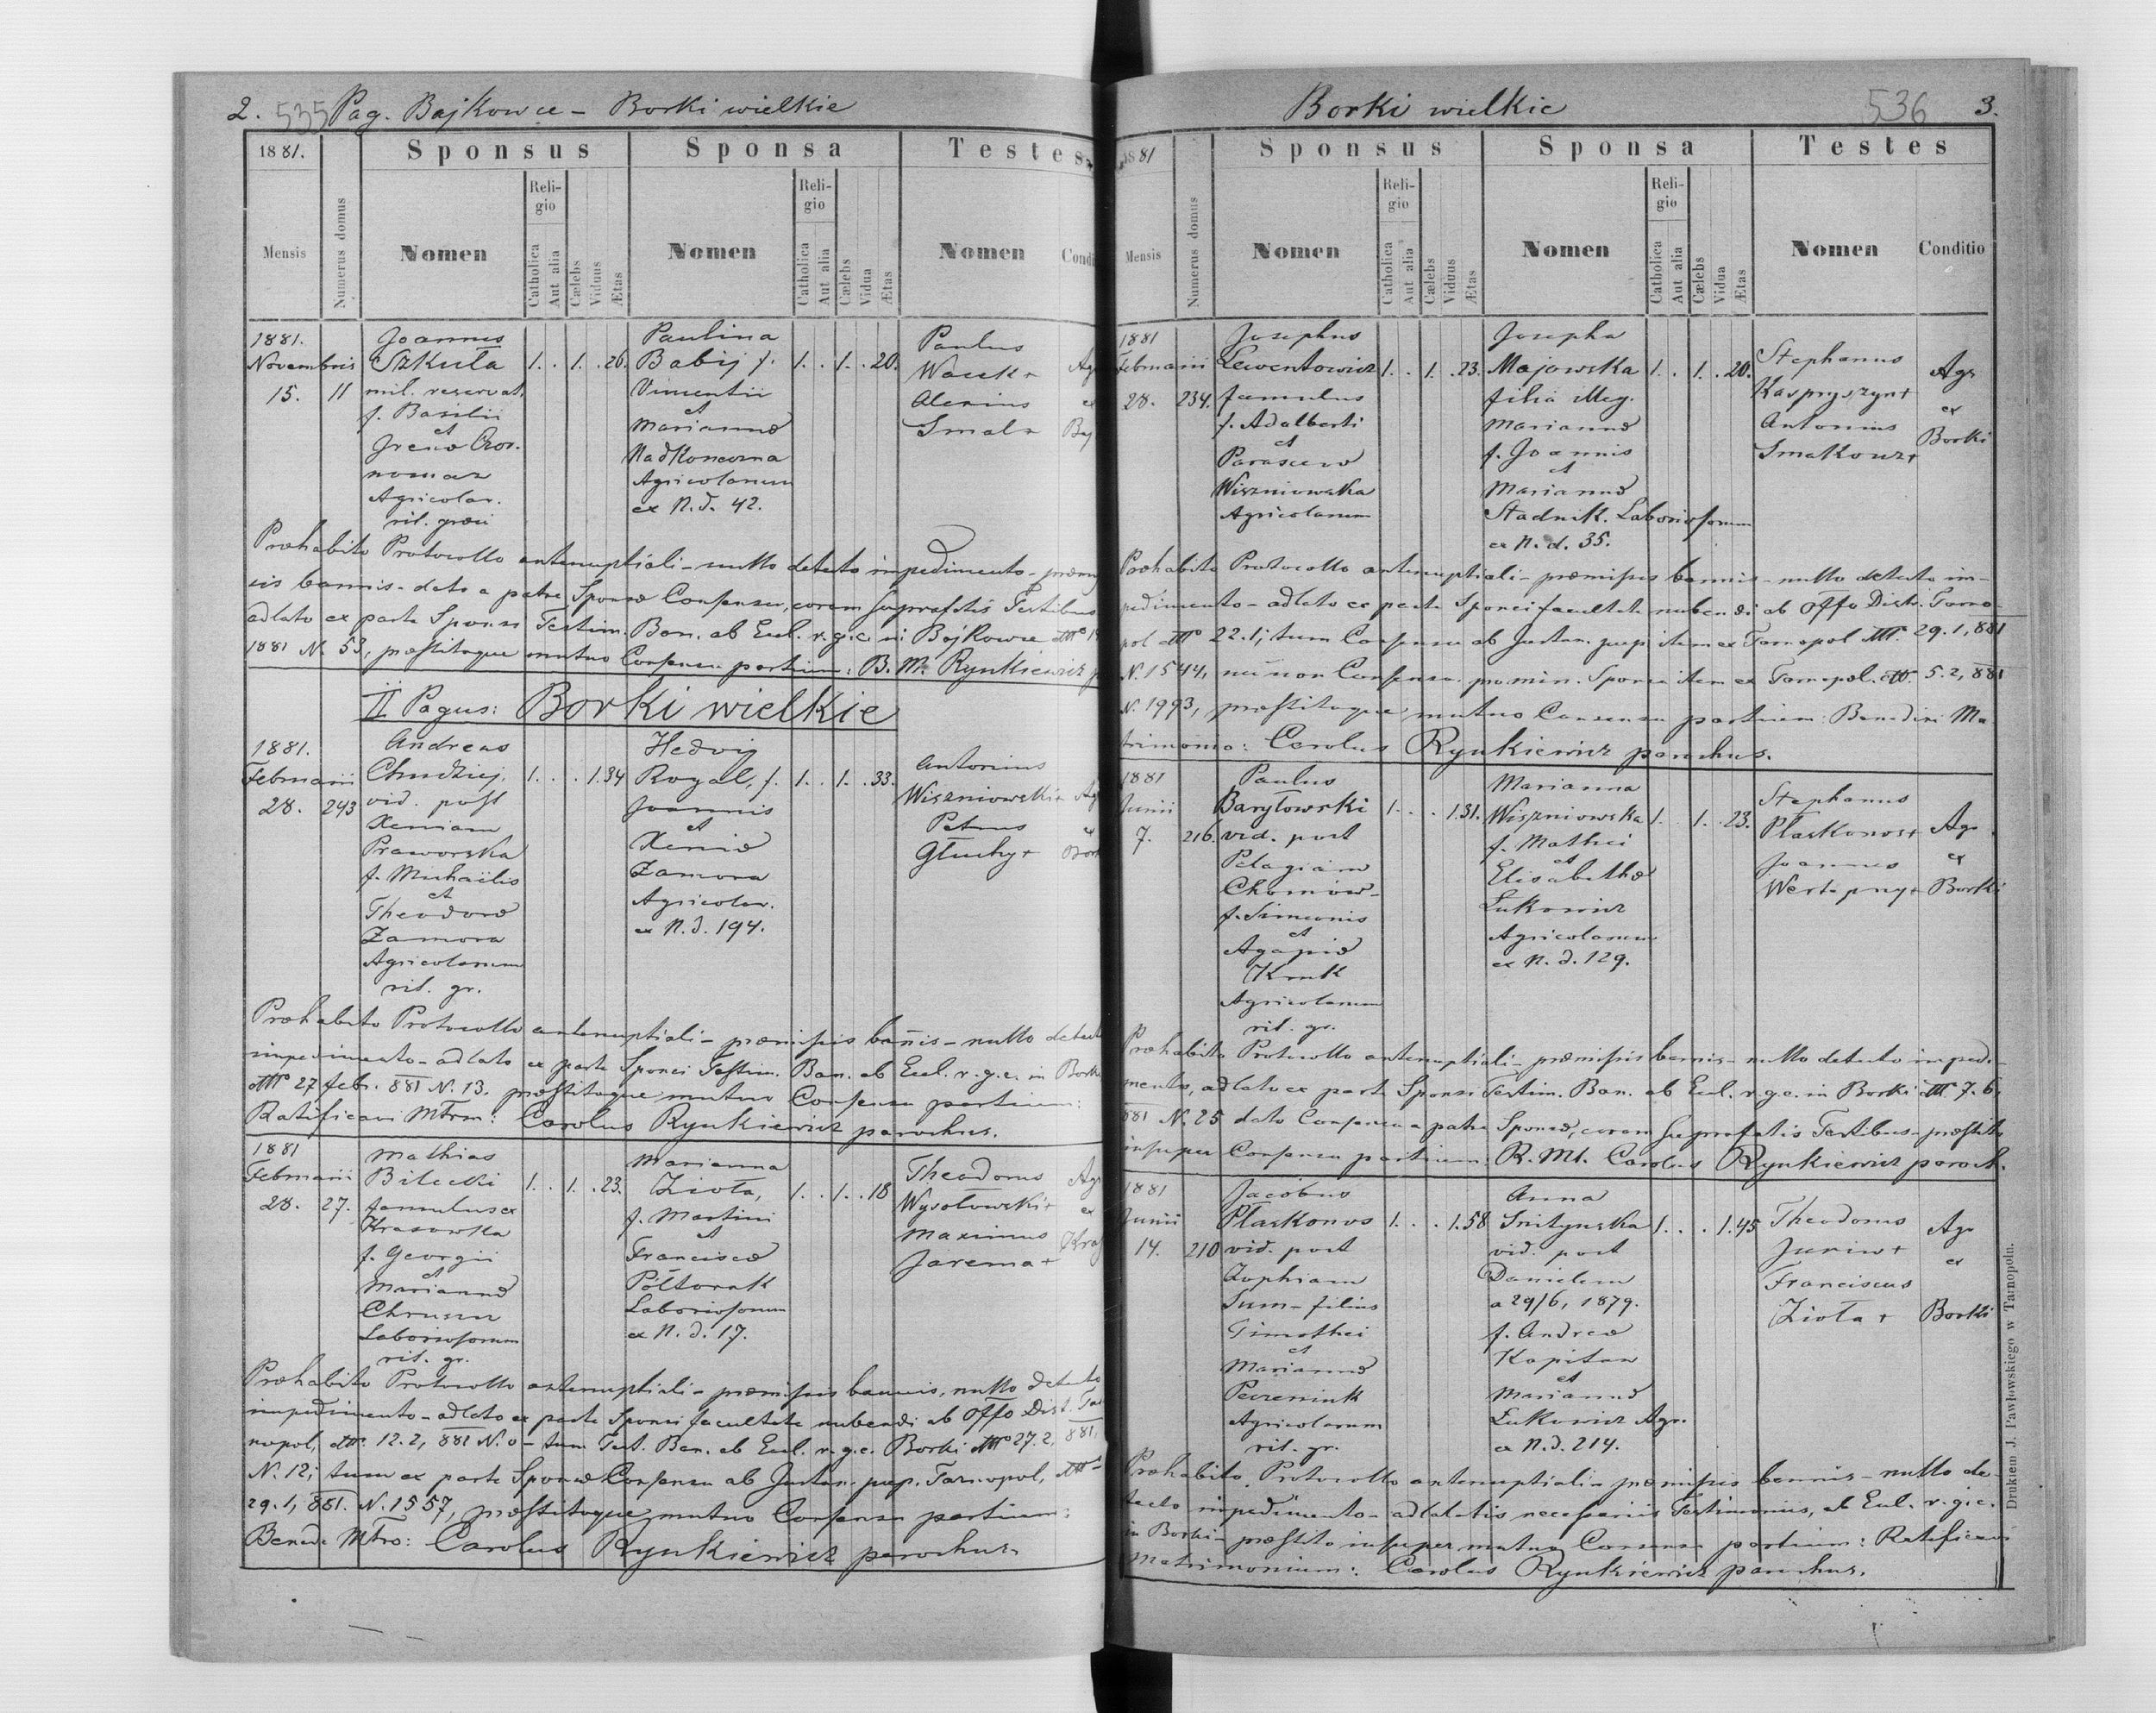 2. 535 Pag. Bajkowce - Borki wielkie
1881.
Sponsus
Sponsa
Testes
Mensis
Numerus domus
Nomen
Religio
Catholica
Aut alia
Cælebs
Viduus
Ætas
Nomen
Religio
Catholica
Aut alia
Cælebs
Vidua
Ætas
Nomen
Condi
1881.
Novembris
15.
11
Joannes
Szkuła
mil. reservat.
f. Basilii
et
Irenæ Czor-
nomaz
Agricolar.
rit. græci
1. . 1. . 26.
Paulina
Babij f.
Vincentii
et
Mariannæ
Nadkoneczna
Agricolarum
ex N. d. 42.
1. . 1. . 20.
Paulus
Alexius
Smal +
Præhabito Protocollo antenuptiali - nullo detecto impedimento - præmis
sis bannis - dato a patre Sponsæ Consensu, coram suprafatis Testibus
adlato ex parte Sponsi Testim. Ban. ab Eccl. r. g. c. in Bajkowce
1881 N. 53, præstitoque mutuo Consensu partium: B. M. Rynkiewicz p
II Pagus: Borki wielkie
1881.
Februarii
28.
243
Andreas
Chudziej,
vid. post
Xeniam
Praworska
f. Michaëlis
et
Theodoræ
Zamora
Agricolarum
rit. gr.
1. . . 1. 34
Hedvig
Rogal, f.
Joannis
et
Xeniæ
Zamora
Agricolar.
ex N. d. 194.
1. . 1. . 33.
Antonius
Wiszniowski +
Petrus
Głuchy +
Præhabito Protocollo antenuptiali - præmissis bannis - nullo detecto
impedimento - adlato ex parte Sponsi Testim. Ban. ab Eccl. r. g. c. in Borki
27 febr. 881 N. 13. præstitoque mutuo Consensu partium:
Ratificavi Mtrm: Carolus Rynkiewicz parochus.
1881
Februarii
28.
27.
Mathias
Bilecki
famulus ex
Krasowka
f. Georgii
et
Mariannæ
Laboriosorum
rit. gr.
1. . 1. . 23.
Marianna
Zioła,
f. Martini
et
Franciscæ
Półtorak
Laboriosorum
ex N. d. 17.
1. . 1. . 18
Theodorus
Wysotowski +
Maximus
Jarema +
Præhabito Protocollo antenuptiali - præmissis bannis, nullo detecto
impedimento - adlato ex parte Sponsi facultate nubendi ab Offo Dist. Tar
nopol, 12.2, 881 N. 0 - tum Test. Ban. ab Eccl. r. g. c. Borki 27.2, 881,
N. 12; tum ex parte Sponsæ Consensu ab Justan. pup. Tarnopol,
29.1, 881. N. 1557, præstitoque mutuo Consensu partium:
Bened. Mtro: Carolus Rynkiewicz parochus.
Borki wielkie
536 3.
1881
Sponsus
Sponsa
Testes
Mensis
Numerus domus
Nomen
Religio
Catholica
Aut alia
Cælebs
Viduus
Ætas
Nomen
Religio
Catholica
Aut alia
Cælebs
Vidua
Ætas
Nomen
Conditio
1881
Februarii
28.
234.
Josephus
Lewentowicz
famulus
f. Adalberti
et
Parascevæ
Wiszniowska
Agricolarum
1. . 1. . 23.
Josepha
Majowska
filia illeg.
Mariannæ
f. Joannis
et
Mariannæ
Stadnik. Laboriosorum
ex N. d. 35.
1. . 1. . 20.
Stephanus
Kaspryszyn +
Antonius
Smalkowz +
Agr
ex
Borki
Præhabito Protocollo antenuptiali - præmissis bannis - nullo detecto im-
pedimento - adlato ex parte Sponsi facultate nubendi ab Offo Distr. Tarno-
pol 22.1; tum Consensu ab Justan. pup item ex Tarnopol 29.1, 881
N. 1544, nec non Consensu pro min. Sponsa item ex Tarnopol. 5.2, 881
N. 1993, præstitoque mutuo Consensu partium: Benedixi Ma
trimonio: Carolus Rynkiewicz parochus.
1881
Junii
7.
216.
Paulus
Baryłowski
vid. post
Pelagiam
Chomów -
f. Simeonis
et
Agapiæ
Kruk
Agricolarum
rit. gr.
1. . . 1. 31.
Marianna
Wiszniowska
f. Mathei
et
Elisabethæ
Łukowicz
Agricolarum
ex N. d. 129.
1. . 1. . 23.
Stephanus
Płaskonos +
Joannes
Wertepny +
Agr.
ex
Borki
Præhabito Protocollo antenuptiali - præmissis bannis - nullo detecto impedi-
mento, adlato ex parte Sponsi Testim. Ban. ab Eccl. r. g. c. in Borki 7.6,
881 N. 25 dato Consensu a patre Sponsæ, coram suprafatis Testibus - præstito
insuper Consensu partium: R. Mt. Carolus Rynkiewicz paroch.
1881
Junii
14.
210
Jacobus
Płaskonos
vid. post
Zophiam
Sum - filius
Timothei
et
Mariannæ
Agricolarum
rit. gr.
1. . . 1. 58
Anna
Snityńska
vid. post
Danielem
a 29/6, 1879.
f. Andreæ
Kapitan
et
Mariannæ
Łukowicz Agr.
ex N. d. 214.
1. . . 1. 45
Theodorus
Juriw +
Franciscus
Zioła +
Agr
ex
Borki
Præhabito Protocollo antenuptiali - præmissis bannis - nullo de-
tecto impedimento - adlatis necessariis Testimoniis, ab Eccl. r. g. c.
in Borki - præstito insuper mutuo Consensu partium: Ratificavi
Matrimonium: Carolus Rynkiewicz parochus.
Drukiem J. Pawłowskiego w Tarnopolu.